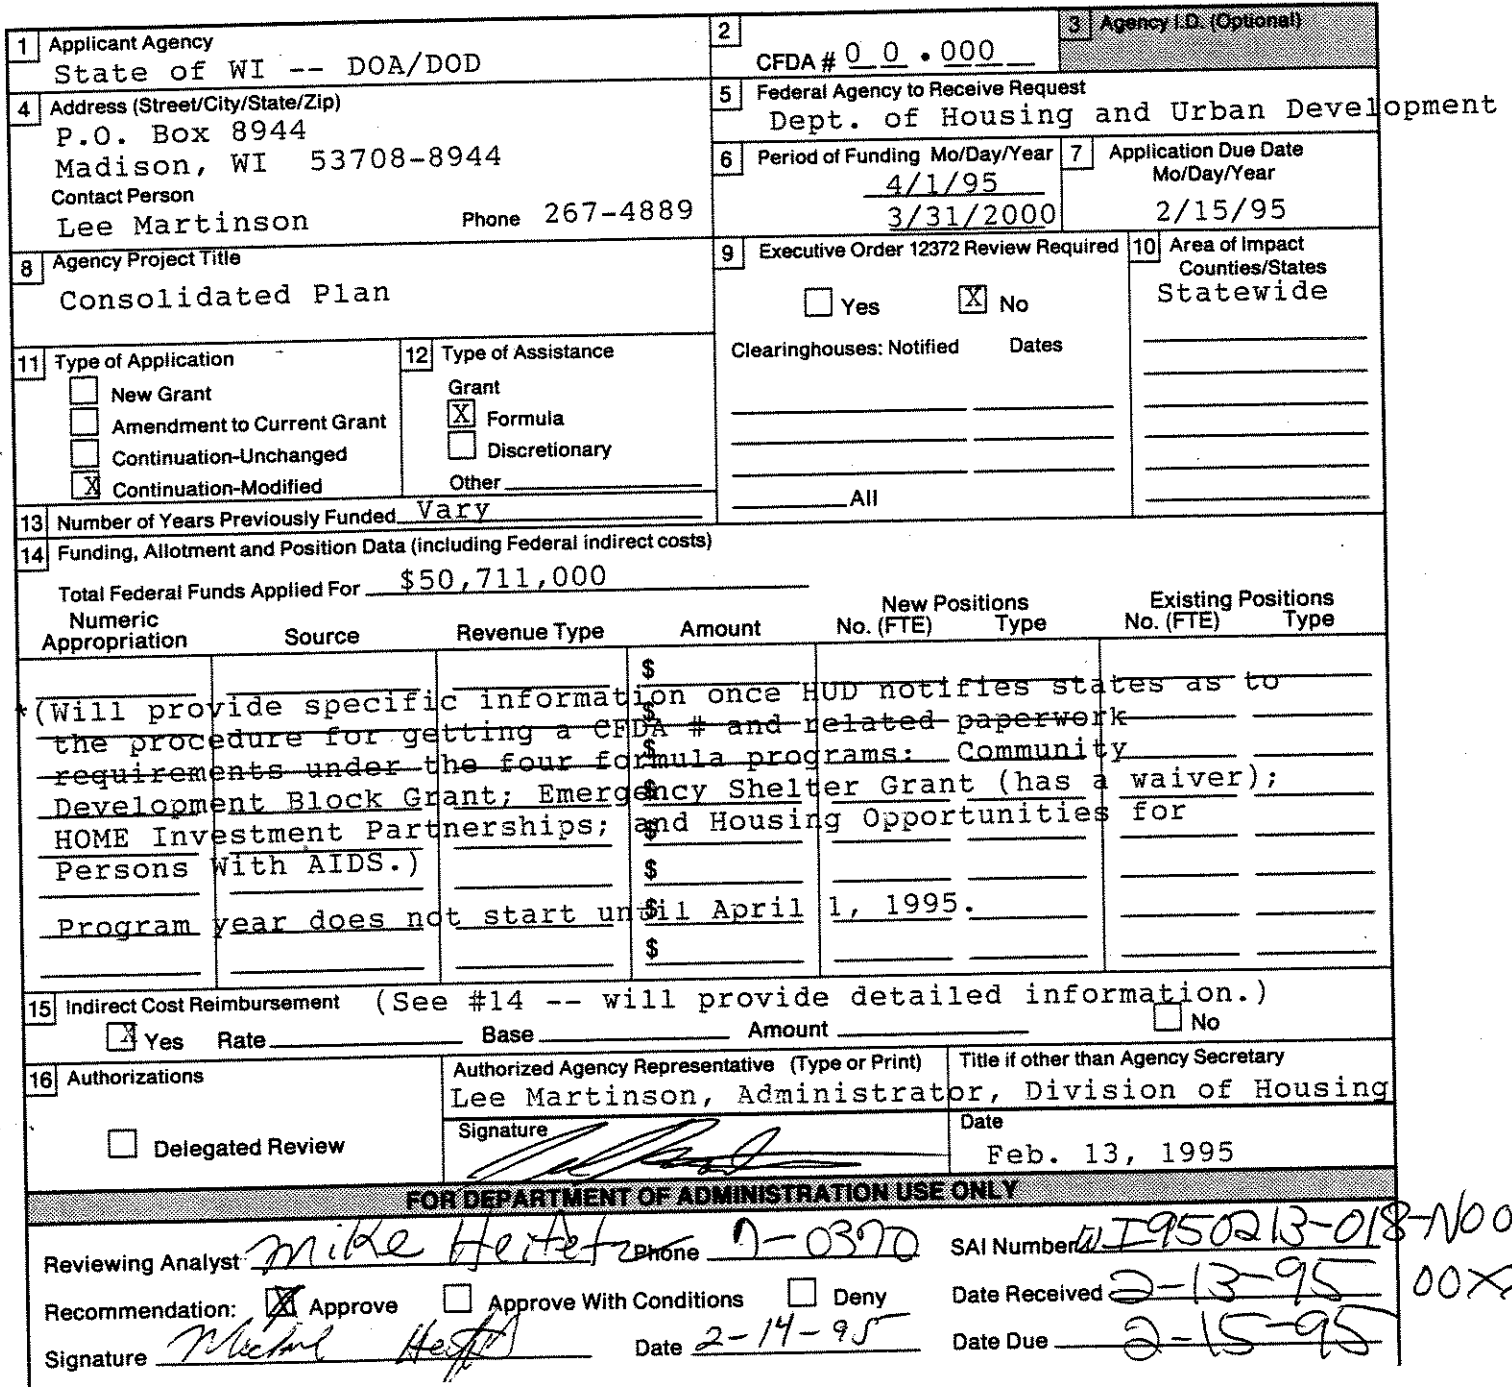 1 Applicant Agency
State of WI -- DOA/DOD
2
CFDA # 0 0 . 000
3 Agency I.D. (Optional)
4 Address (Street/City/State/Zip)
P.O. Box 8944
Madison, WI 53708-8944
Contact Person
Lee Martinson Phone 267-4889
5 Federal Agency to Receive Request
Dept. of Housing and Urban Development
6 Period of Funding Mo/Day/Year
4/1/95
3/31/2000
7 Application Due Date
Mo/Day/Year
2/15/95
8 Agency Project Title
Consolidated Plan
9 Executive Order 12372 Review Required
Yes X No
Clearinghouses: Notified Dates
All
10 Area of Impact
Counties/States
Statewide
11 Type of Application
New Grant
Amendment to Current Grant
Continuation-Unchanged
X Continuation-Modified
12 Type of Assistance
Grant
X Formula
Discretionary
Other
13 Number of Years Previously Funded Vary
14 Funding, Allotment and Position Data (including Federal indirect costs)
Total Federal Funds Applied For $50,711,000
Numeric New Positions Existing Positions
Appropriation Source Revenue Type Amount No. (FTE) Type No. (FTE) Type
$
*(Will provide specific information once HUD notifies states as to
$
the procedure for getting a CFDA # and related paperwork
$
requirements under the four formula programs: Community
$
Development Block Grant; Emergency Shelter Grant (has a waiver);
$
HOME Investment Partnerships; and Housing Opportunities for
Persons With AIDS.)
$
$
Program year does not start until April 1, 1995.
$
15 Indirect Cost Reimbursement (See #14 -- will provide detailed information.)
X Yes Rate Base Amount No
16 Authorizations
Delegated Review
Authorized Agency Representative (Type or Print) Title if other than Agency Secretary
Lee Martinson, Administrator, Division of Housing
Signature
Date
Feb. 13, 1995
FOR DEPARTMENT OF ADMINISTRATION USE ONLY
Reviewing Analyst Mike Phone 7-0370 SAI Number WI950213-018-N00
00XX
Recommendation: X Approve Approve With Conditions Deny Date Received 2-13-95
Signature Date 2-14-95 Date Due 2-15-95